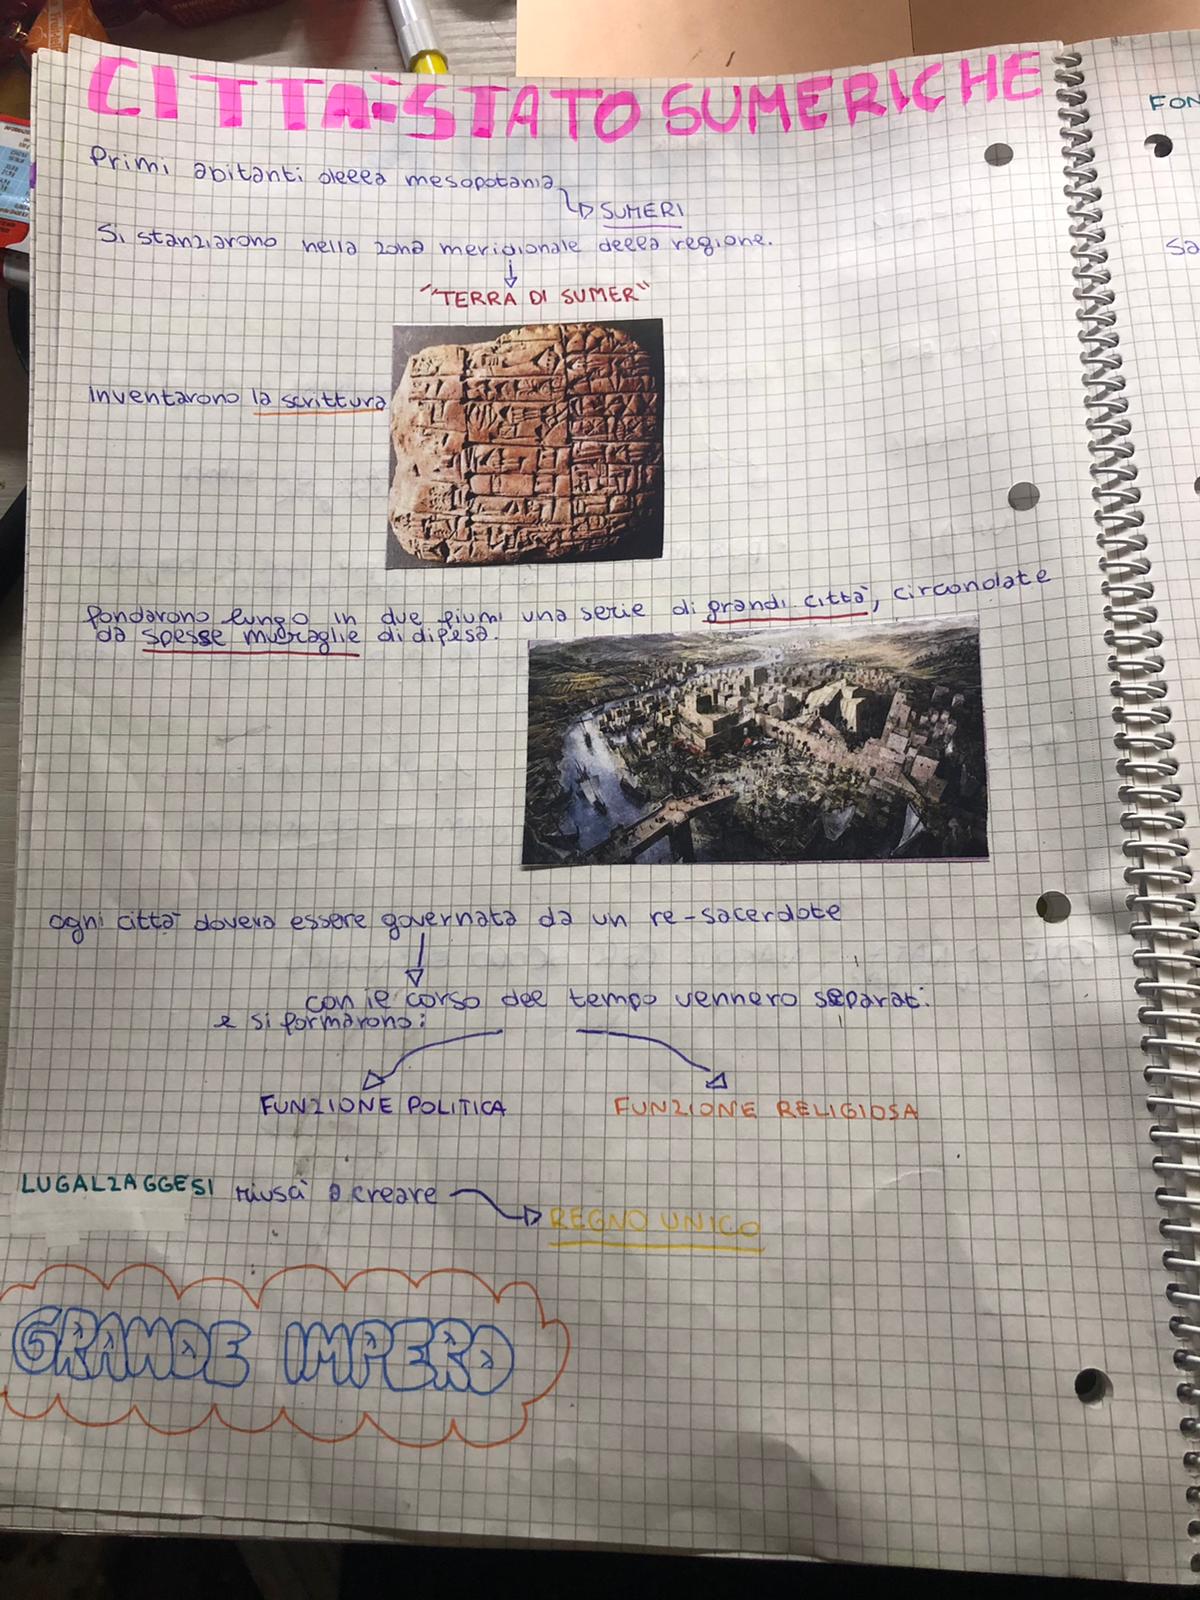 CITTÀ-STATO SUMERICHE
FON
Primi abitanti della mesopotania
SUMERI
Sa
Si stanziarono nella zona meridionale della regione.
"TERRA DI SUMER"
inventarono la scrittura
fondarono lungo in due fiumi una serie di grandi città, circondate
da spesse muraglie di difesa.
ogni città doveva essere governata da un re-sacerdote
con il corso del tempo vennero separati
e si formarono:
FUNZIONE POLITICA
FUNZIONE RELIGIOSA
LUGALZAGGESI riuscì a creare
REGNO UNICO
GRANDE IMPERO